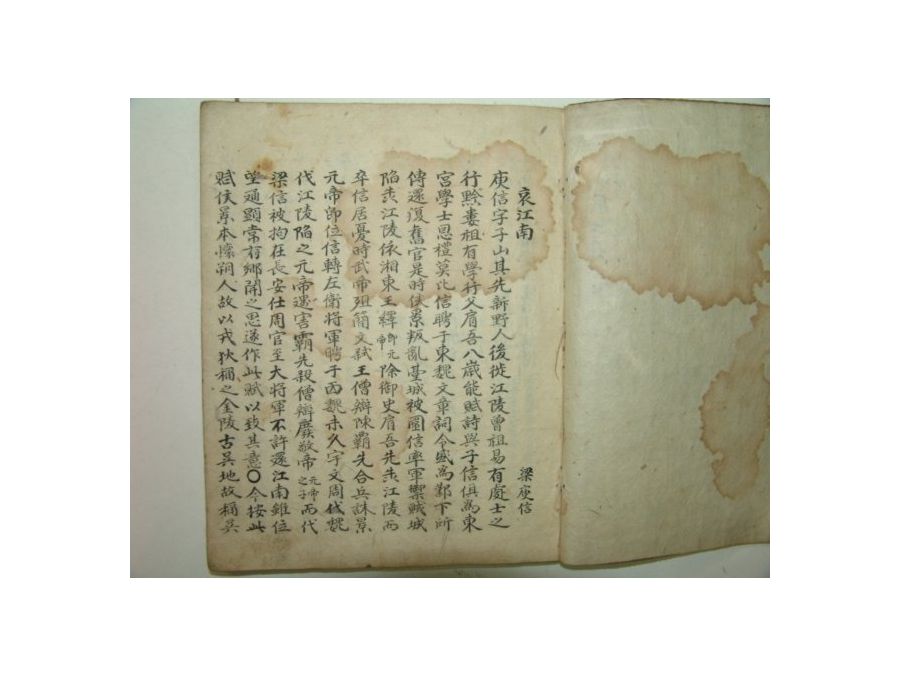 哀江南 梁庾信
庾信字子山其先新野人後徙江陵曾祖易有處士之
行黔婁祖有學行父肩吾八歲能賦詩與子信俱爲東
宮學士恩禮莫比信聘于東魏文章詞令盛爲鄴下所
傳還復舊官是時侯景叛亂臺城被圍信率軍禦賊城
陷奔江陵依湘東王繹卽元帝除御史肩吾先奔江陵而
卒信居憂時武帝殂簡文弑王僧辯陳霸先合兵誅景
元帝卽位信轉左衛將軍聘于西魏未久宇文周伐魏
代江陵陷之元帝遇害霸先殺僧辯廢敬帝元帝之子而代
梁信被拘在長安仕周官至大將軍不許還江南雖位
望通顯常有鄕關之思遂作此賦以致其意〇今按此
賦侯景本懷朔人故以戎狄稱之金陵古吳地故稱吳